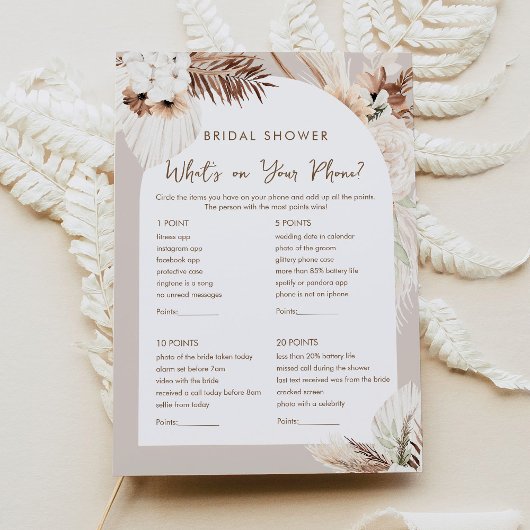 BRIDAL SHOWER
What's on Your Phone?
Circle the items you have on your phone and add up all the points.
The person with the most points wins!
1 POINT
fitness app
instagram app
facebook app
protective case
ringtone is a song
no unread messages
Points:________
5 POINTS
wedding date in calendar
photo of the groom
glittery phone case
more than 85% battery life
spotify or pandora app
phone is not an iphone
Points:________
10 POINTS
photo of the bride taken today
alarm set before 7am
video with the bride
received a call today before 8am
selfie from today
Points:________
20 POINTS
less than 20% battery life
missed call during the shower
last text received was from the bride
cracked screen
photo with a celebrity
Points:________